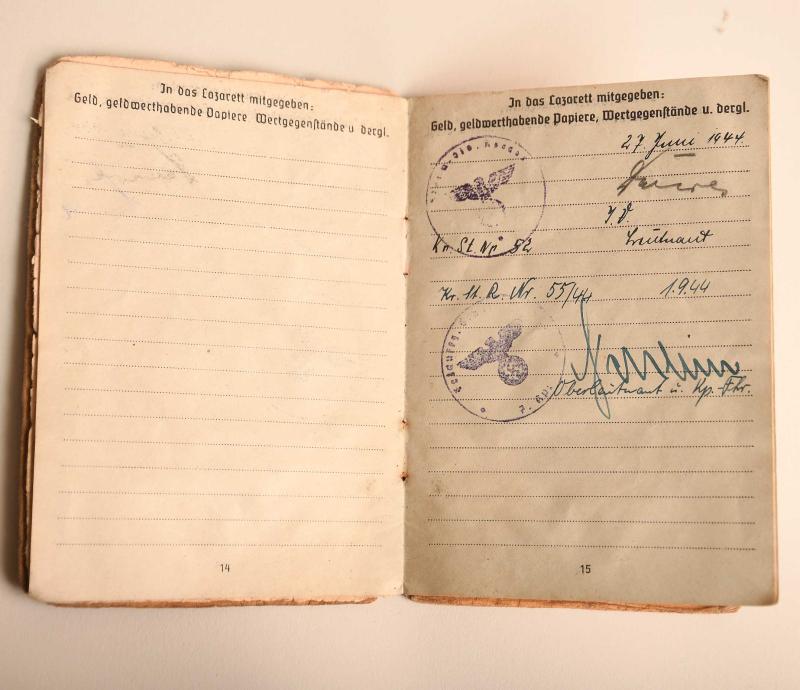 In das Lazarett mitgegeben:
Geld, geldwerthabende Papiere Wertgegenstände u dergl.
14
In das Lazarett mitgegeben:
Geld, geldwerthabende Papiere, Wertgegenstände u. dergl.
27. Juni 1944
Kr. St. Nr. 52
Leutnant
Kr. St. R. Nr. 55/44 1.9.44
Oberleutnant u. Kp. Fhr.
15